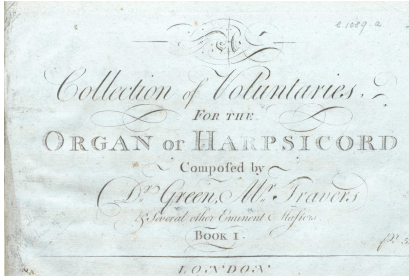 A
Collection of Voluntaries
FOR THE
ORGAN or HARPSICORD
Composed by
Dr. Green, Mr. Travers
& Several other Eminent Masters
BOOK I.
LONDON